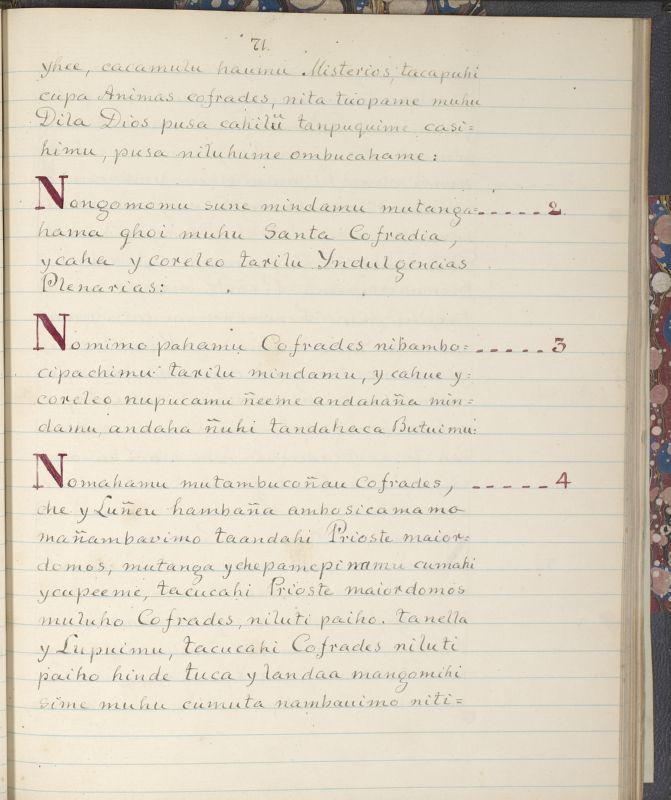 71.
yhee, cacamulu haumu Misterios, tacapuhi
cupa Animas cofrades, nita tuopame muhu
Dila Dios pusa cahilũ tanpuquime casi=
himu, pusa niluhume ombucahame:
Nongomomu sune mindamu mutanga=.....2.
hama ghoi muhu Santa Cofradia,
ycaha y coreleo tarilu Yndulgencias
Plenarias:
Nomimo pahamu Cofrades nibambo:.....3
cipachimu tarilu mindamu, y cahue y:
coreleo nupucamu ñeeme andahaña min=
damu, andaha ñuhi tandahaca Butuimu:
Nomahamu mutambucoñau Cofrades, .....4
che y Luñeu hambaña ambosicamamo
mañambavimo taandahi Prioste maior=
domos, mutanga ychepamepinmu cumahi
ycupeeme, tacucahi Prioste maiordomos
muluho Cofrades, niluti paiho. tanella
y Lupuimu, tacucahi Cofrades niluti
paiho hinde tuca y landaa mangomihi
sime muhu cumuta nambauimo niti=